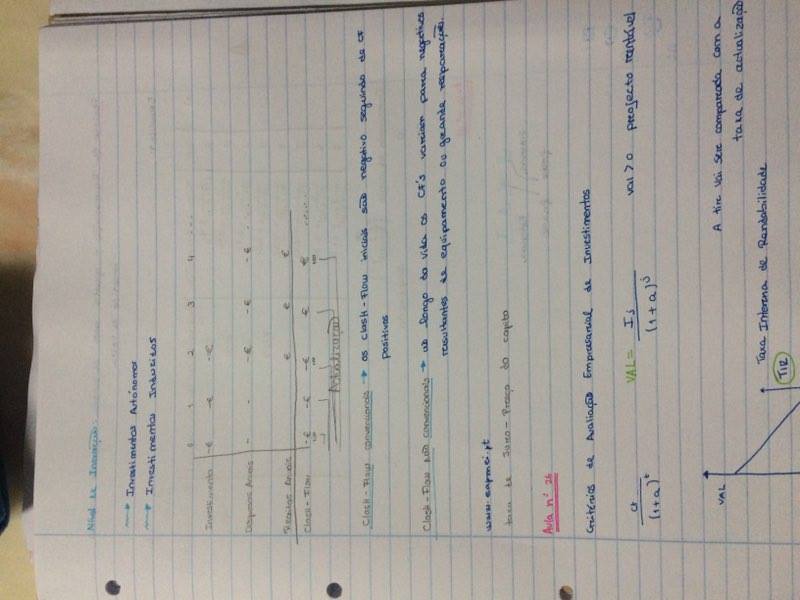 Nível de Inovação.
Investimentos Autónomos
Investimentos Induzidos
0 1 2 3 4 ...
Investimento -€ -€ -€
Despesas Anuais - - -€ -€ -€ ...
Receitas Anuais € € €
Clash-Flow -€ -€ -€ € € .....
Actualização
Clash-Flow convencionais → os Clash-Flow iniciais são negativo seguindo de CF
positivos
Clash-Flow não convencionais → ao longo da vida os CF's variam para negativos
resultantes de equipamento ou grande resparação.
www.eapmei.pt
taxa de Juro - Preço do capito
Aula nº 26
Critérios de Avaliação Empresarial de Investimentos
Cf / (1+a)^t VAL = Ij / (1+a)^j val > 0 projecto rentável
VAL A tir vai ser comparada com a
taxa de actualização
Taxa Interna de Rendabilidade
TIR